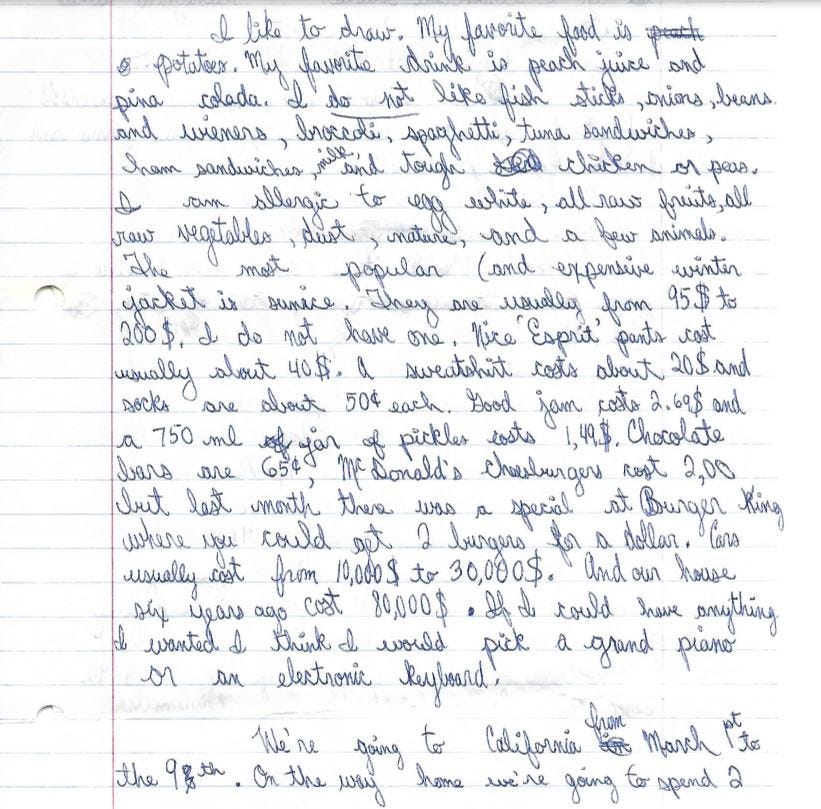 I like to draw. My favorite food is peach
potatoes. My favorite drink is peach juice and
pina colada. I do not like fish sticks, onions, beans
and wieners, broccoli, spaghetti, tuna sandwiches,
ham sandwiches, milk, and tough chicken or peas.
I am allergic to egg white, all raw fruits, all
raw vegetables, dust, nature, and a few animals.
The most popular (and expensive winter
jacket is sunice. They are usually from 95$ to
200$. I do not have one. Nice 'Esprit' pants cost
usually about 40$. A sweatshirt costs about 20$ and
socks are about 50¢ each. Good jam costs 2.69$ and
a 750 ml of jar of pickles costs 1,49$. Chocolate
bars are 65¢, McDonald's cheesburgers cost 2,00
but last month there was a special at Burger King
where you could get 2 burgers for a dollar. Cars
usually cost from 10,000$ to 30,000$. And our house
six years ago cost 80,000$. If I could have anything
I wanted I think I would pick a grand piano
or an electronic keyboard.
We're going to California from March 1st to
the 9th. On the way home we're going to spend 2